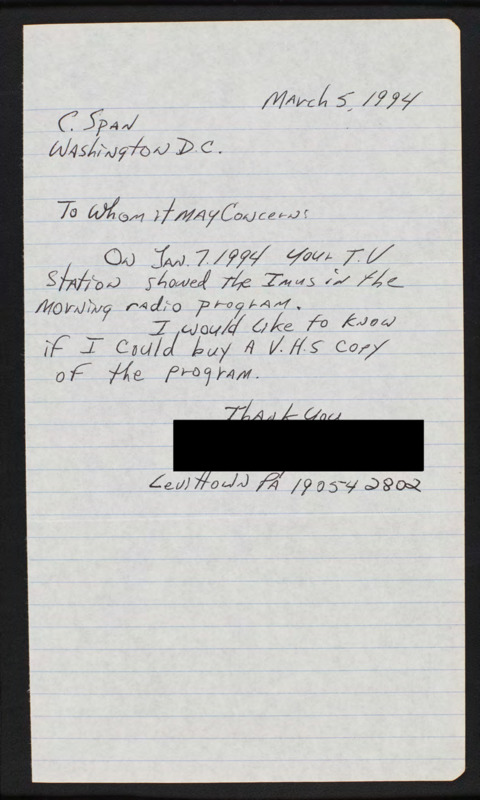 March 5, 1994
C. Span
Washington D.C.
To Whom it May Concerns
On Jan. 7. 1994 your T.V
Station showed the Imus in the
Morning radio program.
I would like to know
if I could buy a V.H.S copy
of the program.
Thank you
Levittown PA 19054 2802